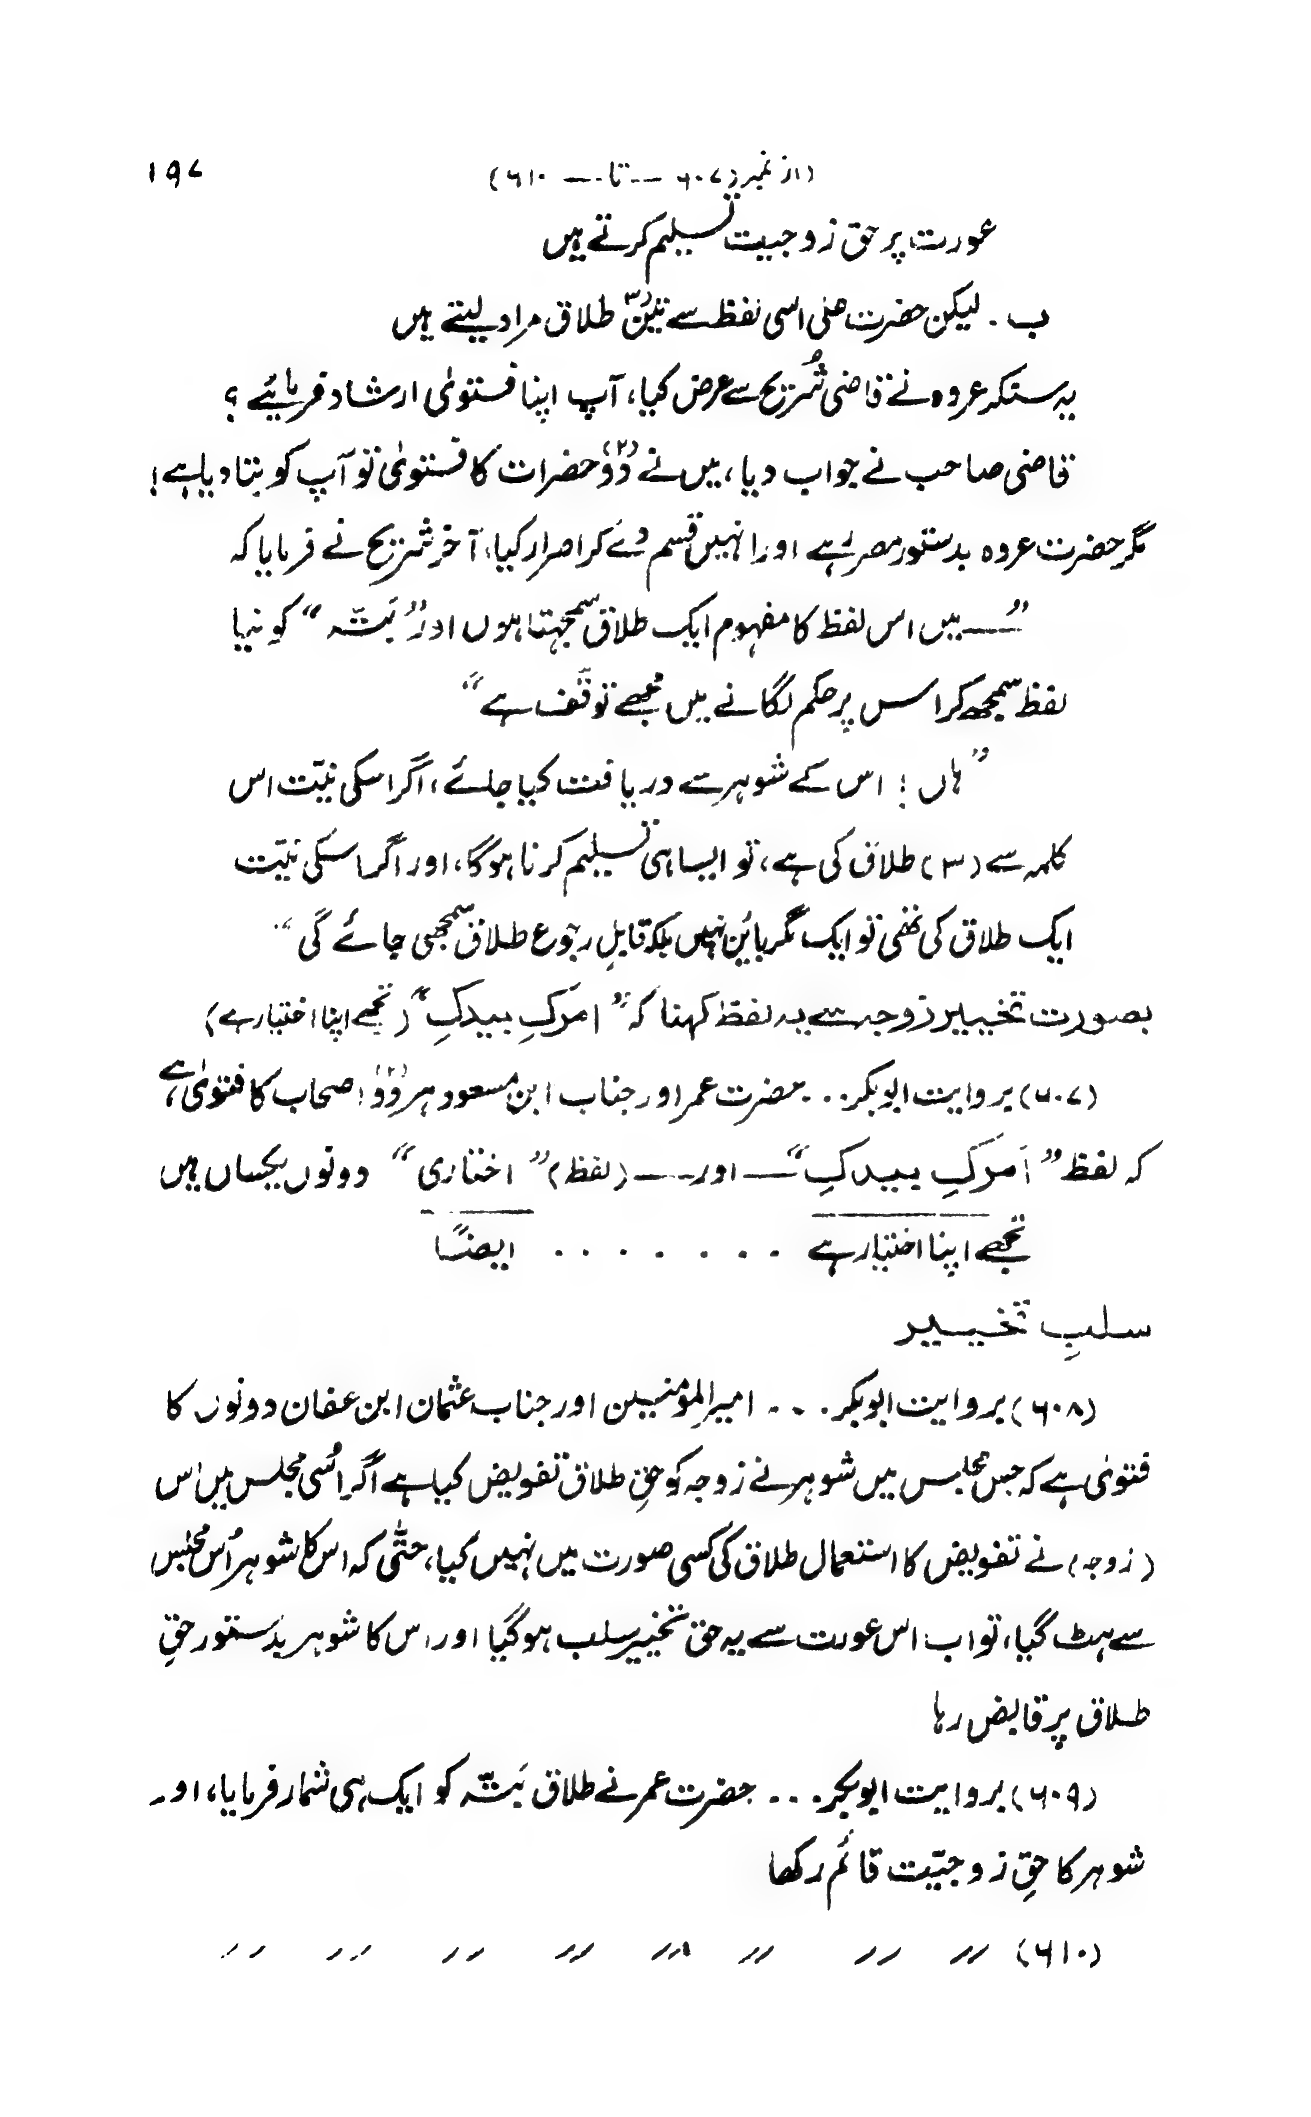 (از نمبر ۶۰۷ --- تا --- ۶۱۰) ۱۹۷
عورت پر حق زوجیت تسلیم کرتے ہیں
ب ۔ لیکن حضرت علی اسی لفظ سے تین (۳) طلاق مراد لیتے ہیں
یہ سنکر عروہ نے قاضی شُریح سے عرض کیا، آپ اپنا فتویٰ ارشاد فرمائیے ؟
قاضی صاحب نے جواب دیا، میں نے دوُ (۲) حضرات کا فتویٰ تو آپ کو بتا دیا ہے!
مگر حضرت عروہ بدستور مصر رہے اور انہیں قسم دے کر اصرار کیا، آخر شریح نے فرمایا کہ
”— میں اس لفظ کا مفہوم ایک طلاق سمجہتا ہوں اور ”بَتّہ“ کو نیا
لفظ سمجھ کر اس پر حکم لگانے میں مجھے توقّف ہے“
”ہاں ! اس کے شوہر سے دریافت کیا جائے، اگر اسکی نیّت اس
کلمہ سے (۳) طلاق کی ہے، تو ایسا ہی تسلیم کرنا ہوگا، اور اگر اسکی نیّت
ایک طلاق کی تھی تو ایک مگر بائن نہیں بلکہ قابلِ رجوع طلاق سمجھی جائے گی“
بصورت تخییر زوجہ سے یہ لفظ کہنا کہ ”امرکِ بیدکِ“ (تجھے اپنا اختیار ہے)
(۶۰۷) بروایت ابوبکر... حضرت عمر اور جناب ابن مسعود ہر دوُ (۲) اصحاب کا فتویٰ ہے،
کہ لفظ ”اَمرکِ بیدکِ“ — اور — (لفظ) ”اختاری“ دونوں یکساں ہیں
تجھے اپنا اختیار ہے ....... ایضاً
سلبِ تخییر
(۶۰۸) بروایت ابوبکر... امیر المؤمنین اور جناب عثمان ابن عفان دونوں کا
فتویٰ ہے کہ جس مجلس میں شوہر نے زوجہ کو حقِ طلاق تفویض کیا ہے اگر اُسی مجلس میں اس
(زوجہ) نے تفویض کا استعمال طلاق کی کسی صورت میں نہیں کیا، حتّٰی کہ اس کا شوہر اُس مجلس
سے ہٹ گیا، تو اب اس عورت سے یہ حق تخییر سلب ہوگیا اور اس کا شوہر بدستور حقِ
طلاق پر قابض رہا
(۶۰۹) بروایت ابوبکر... حضرت عمر نے طلاق بَتّہ کو ایک ہی شمار فرمایا، اور
شوہر کا حقِ زوجیّت قائم رکھا
(۶۱۰) // // // // // // // //